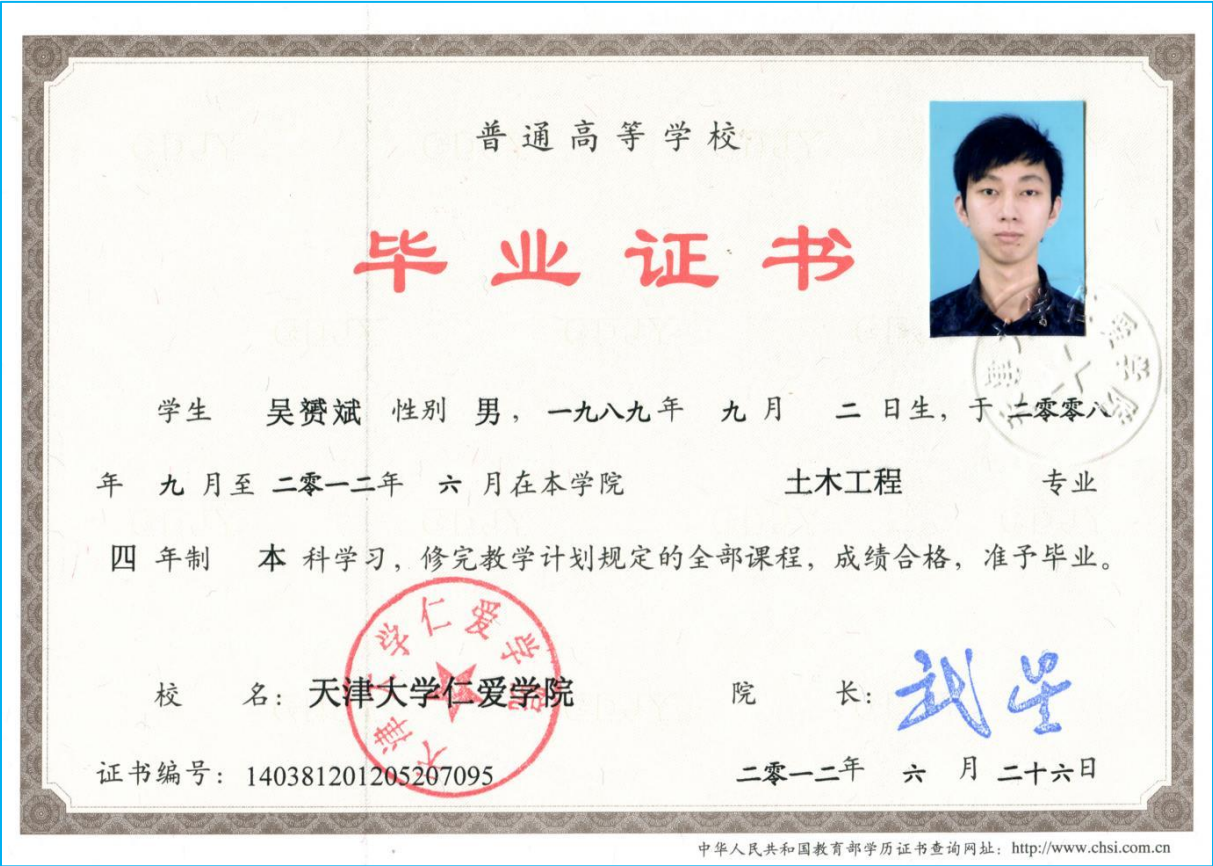 普通高等学校
毕业证书
学生 吴赟斌 性别 男，一九八九年 九月 二日生，于二零零八
年 九月至二零一二年 六月在本学院 土木工程 专业
四年制 本科学习，修完教学计划规定的全部课程，成绩合格，准予毕业。
天津大学仁爱学院
校 名：天津大学仁爱学院 院 长：武星
证书编号：140381201205207095 二零一二年 六月二十六日
中华人民共和国教育部学历证书查询网址：http://www.chsi.com.cn